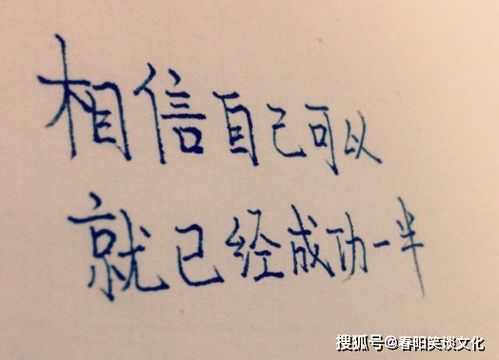 相信自己可以
就已经成功一半
搜狐号@春阳笑谈文化